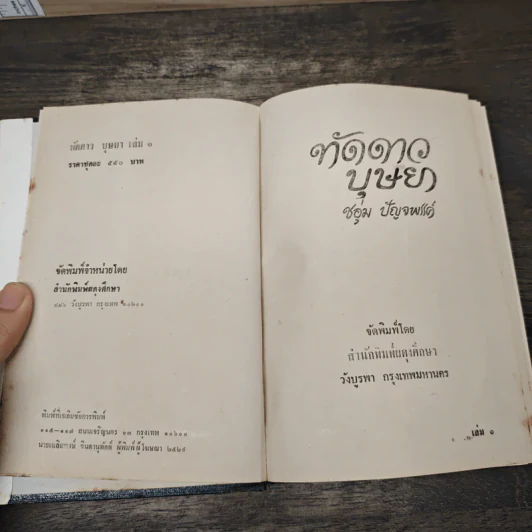 ทัดดาว บุษยา เล่ม ๑
ราคาชุดละ ๕๕๐ บาท
จัดพิมพ์จำหน่ายโดย
สำนักพิมพ์ผดุงศึกษา
วังบูรพา กรุงเทพ ๑๐๒๐๑
๑๑๕–๑๑๗ ถนนเจริญนคร ๑๓ กรุงเทพ ๑๐๖๐๑
จินดานุศักดิ์ ผู้พิมพ์ผู้โฆษณา
ทัดดาว
บุษยา
ชอุ่ม ปัญจพรรค์
จัดพิมพ์โดย
สำนักพิมพ์ผดุงศึกษา
วังบูรพา กรุงเทพมหานคร
เล่ม ๑